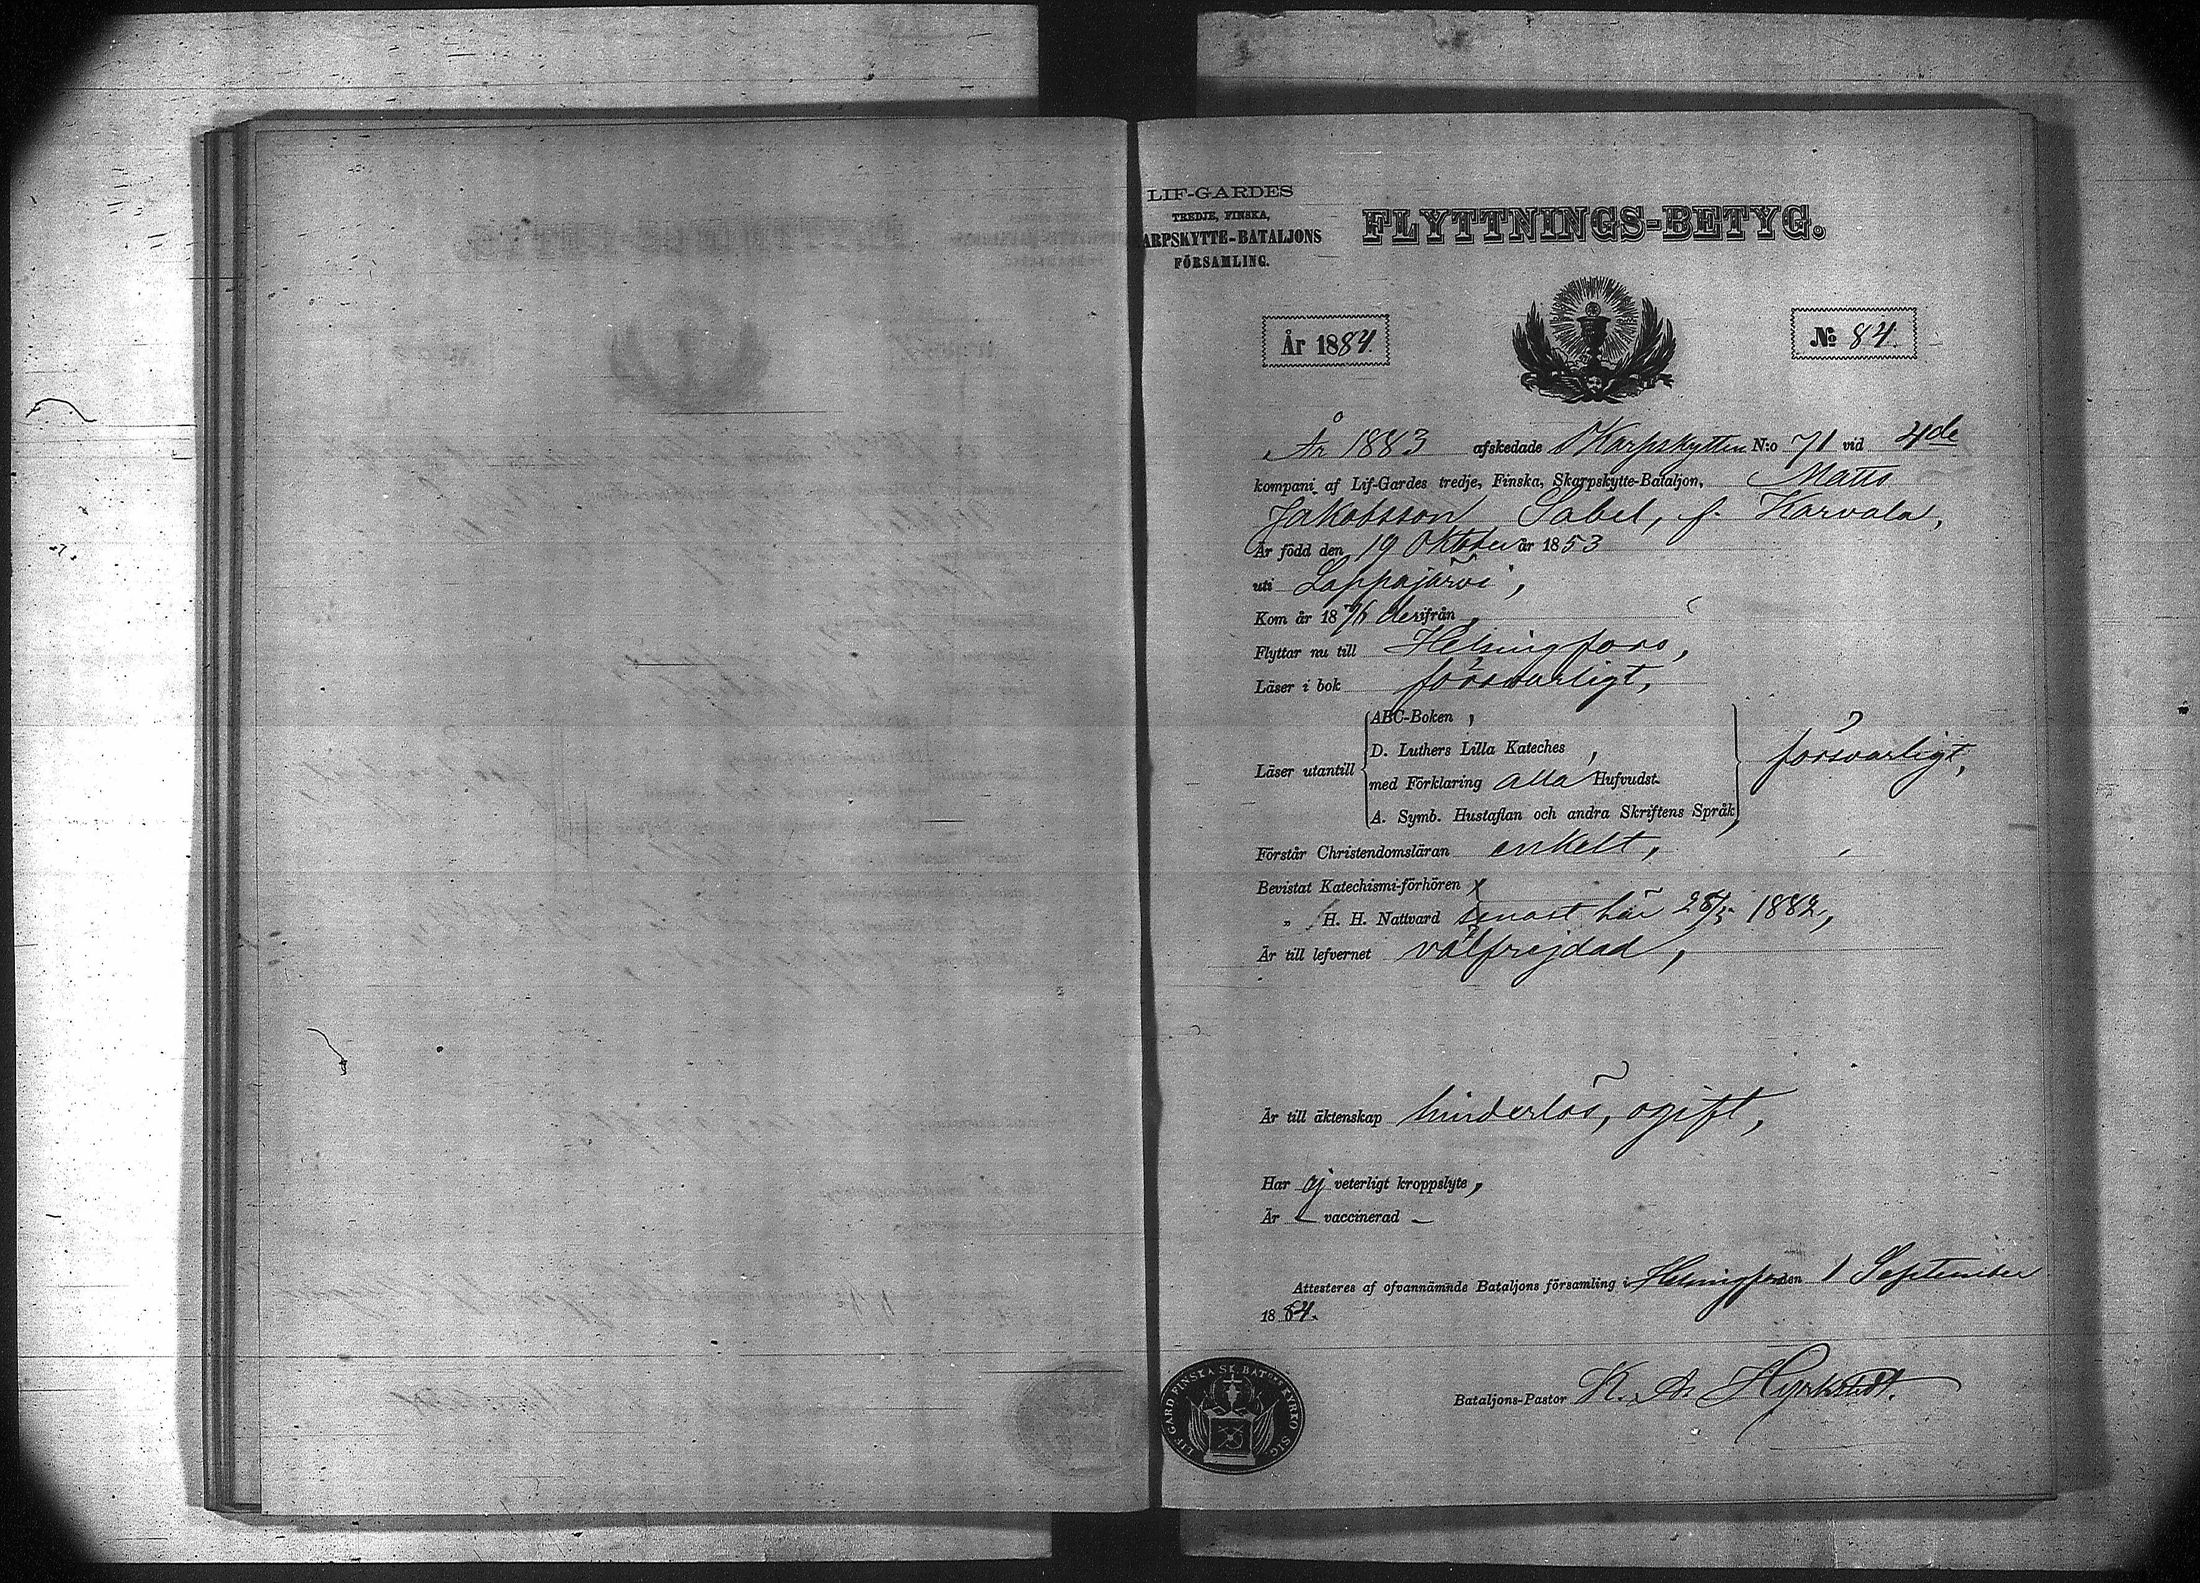 LIF-GARDES
TREDJE, FINSKA,
ARPSKYTTE-BATALJONS
FÖRSAMLING.
FLYTTNINGS-BETYG.
År 1884.
№ 84.
År 1883 afskedade Skarpskytten N:o 71 vid 4de
kompani af Lif-Gardes tredje, Finska, Skarpskytte-Bataljon, Matts
Jakobsson Sabel, f. Karvala,
Är född den 19 Oktober år 1853
uti Lappajärvi,
Kom år 1876 derifrån,
Flyttar nu till Helsingfors,
Läser i bok försvarligt,
Läser utantill
ABC-Boken,
D. Luthers Lilla Kateches,
med Förklaring alla Hufvudst.
A. Symb. Hustaflan och andra Skriftens Språk,
försvarligt,
Förstår Christendomsläran enkelt,
Bevistat Katechismi-förhören
„ H. H. Nattvard senast här 28/5 1882,
Är till lefvernet välfrejdad,
Är till äktenskap hinderlös, ogift,
Har ej veterligt kroppslyte,
Är — vaccinerad —
Attesteres af ofvannämnde Bataljons församling i Helsingfors den 1 September
1884.
Bataljons-Pastor K. A. Hyrkstedt.
LIF-GARD FINSKA SK. BAT:NS KYRKO SIG.